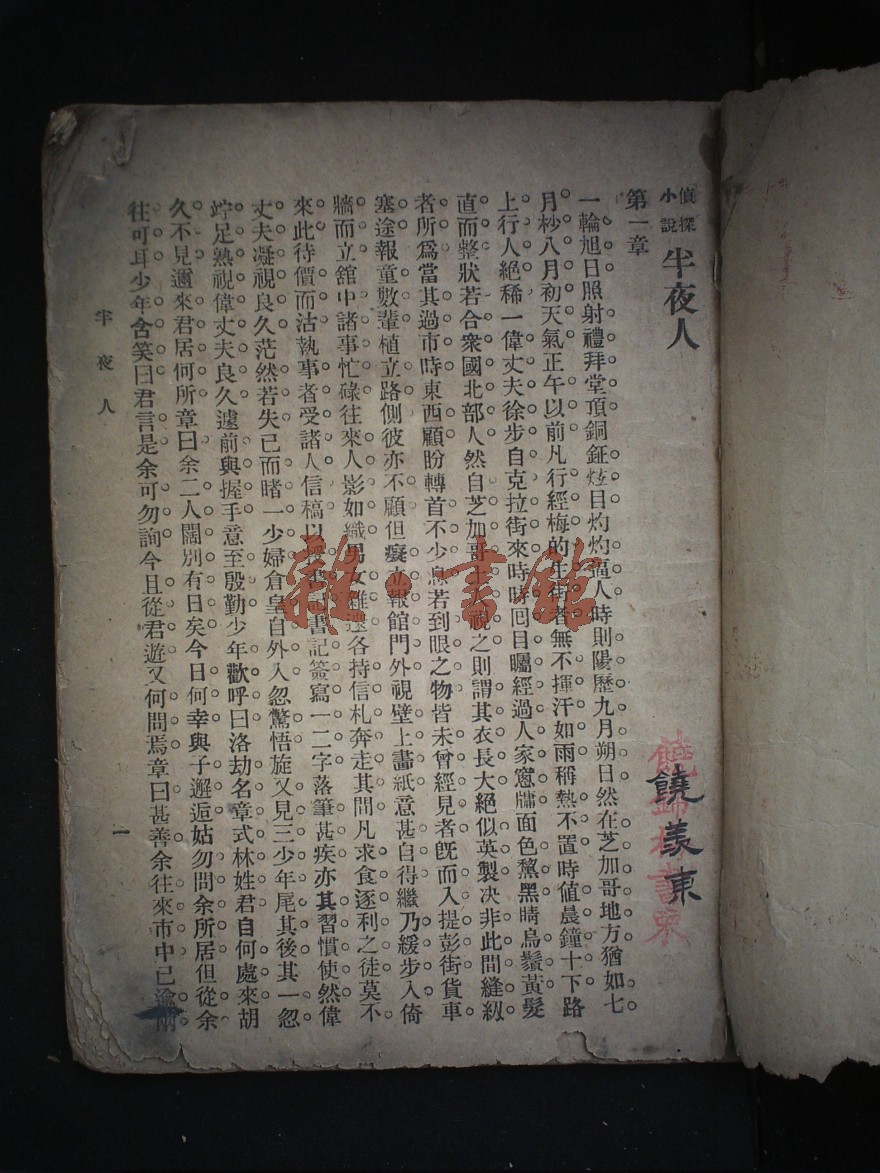 偵探小說 半夜人
第一章
一輪旭日照射禮拜堂頂銅鉦炫目灼灼逼人時則陽歷九月朔日然在芝加哥地方猶如七
月杪八月初天氣正午以前凡行經梅的生街者無不揮汗如雨稱熱不置時値晨鐘十下路
上行人絕稀一偉丈夫徐步自克拉街來時時回目矚經過人家窻牖面色黧黑睛烏鬚黃髮
直而整狀若合衆國北部人然自芝加哥士視之則謂其衣長大絕似英製决非此間縫紉
者所爲當其過市時東西顧盼轉首不少息若到眼之物皆未曾經見者旣而入提彭街貨車
塞途報童數輩植立路側彼亦不顧但癡立報館門外視壁上畫紙意甚自得繼乃緩步入倚
牆而立舘中諸事忙碌往來人影如織男女雜遝各持信札奔走其間凡求食逐利之徒莫不
來此待價而沽執事者受諸人信稿以授書記書記簽寫一二字落筆甚疾亦其習慣使然偉
丈夫凝視良久茫然若失已而睹一少婦倉皇自外入忽驚悟旋又見三少年尾其後其一忽
竚足熟視偉丈夫良久遽前與握手意至殷勤少年歡呼曰洛劫名章式林姓君自何處來胡
久不見邇來君居何所章曰余二人闊別有日矣今日何幸與子邂逅姑勿問余所居但從余
往可耳少年含笑曰君言是余可勿詢今且從君遊又何問焉章曰甚善余往來市中已逾兩
半夜人
一
饒羨東
雜·書館